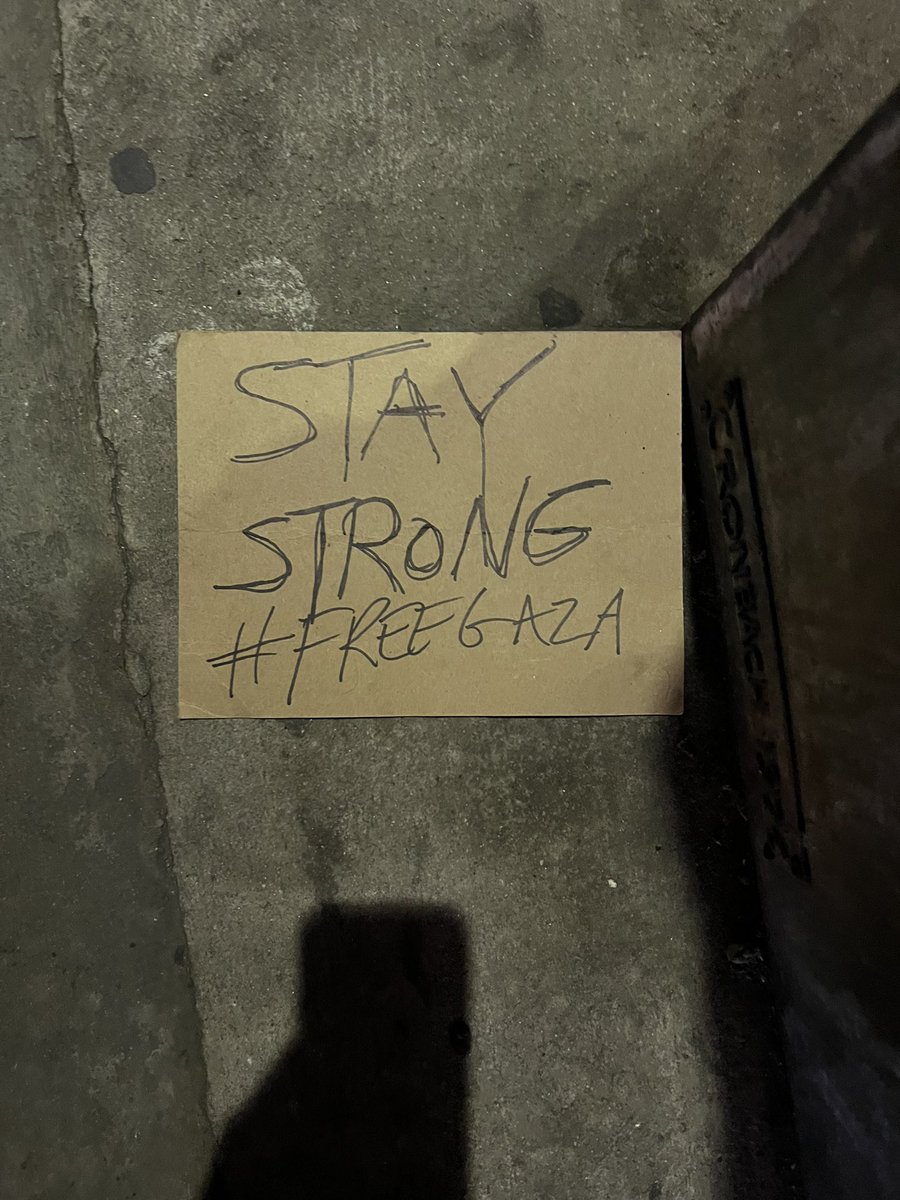 STAY
STRONG
#FREEGAZA